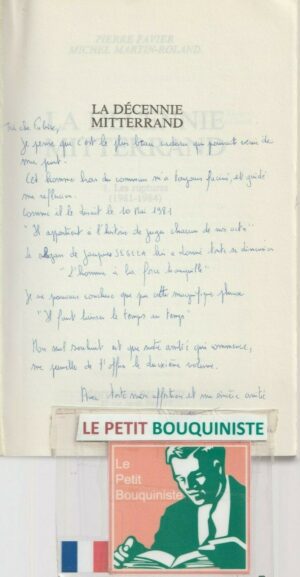 PIERRE FAVIER
MICHEL MARTIN-ROLAND
LA DÉCENNIE
MITTERRAND
1. Les ruptures
(1981-1984)
Je pense que c'est le plus beau cadeau qui pouvait venir de
ma part.
Cet homme hors du commun m'a toujours fasciné, et guidé
ma réflexion.
Comme il le disait le 10 Mai 1981
"Il appartient à l'histoire de juger chacun de nos actes"
Le slogan de Jacques SEGUELA lui a donné toute sa dimension
"L'homme à la force tranquille"
Je ne pouvais conclure que par cette magnifique phrase
"Il faut laisser le temps au temps"
Mon seul souhait est que notre amitié qui commence,
me permette de t'offrir le deuxième volume.
Avec toute mon affection et ma sincère amitié
LE PETIT BOUQUINISTE
Le
Petit
Bouquiniste